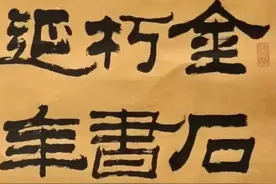 金石
朽書
延年